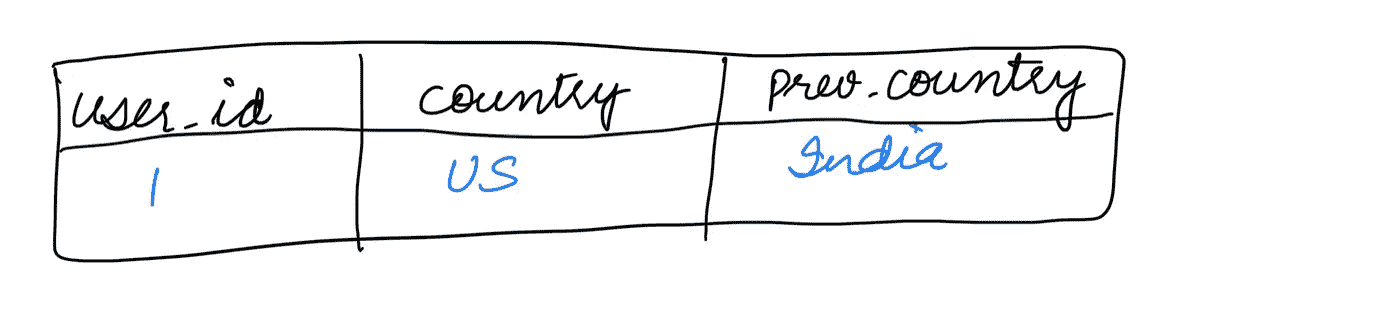 user_id country prev_country
1 US India